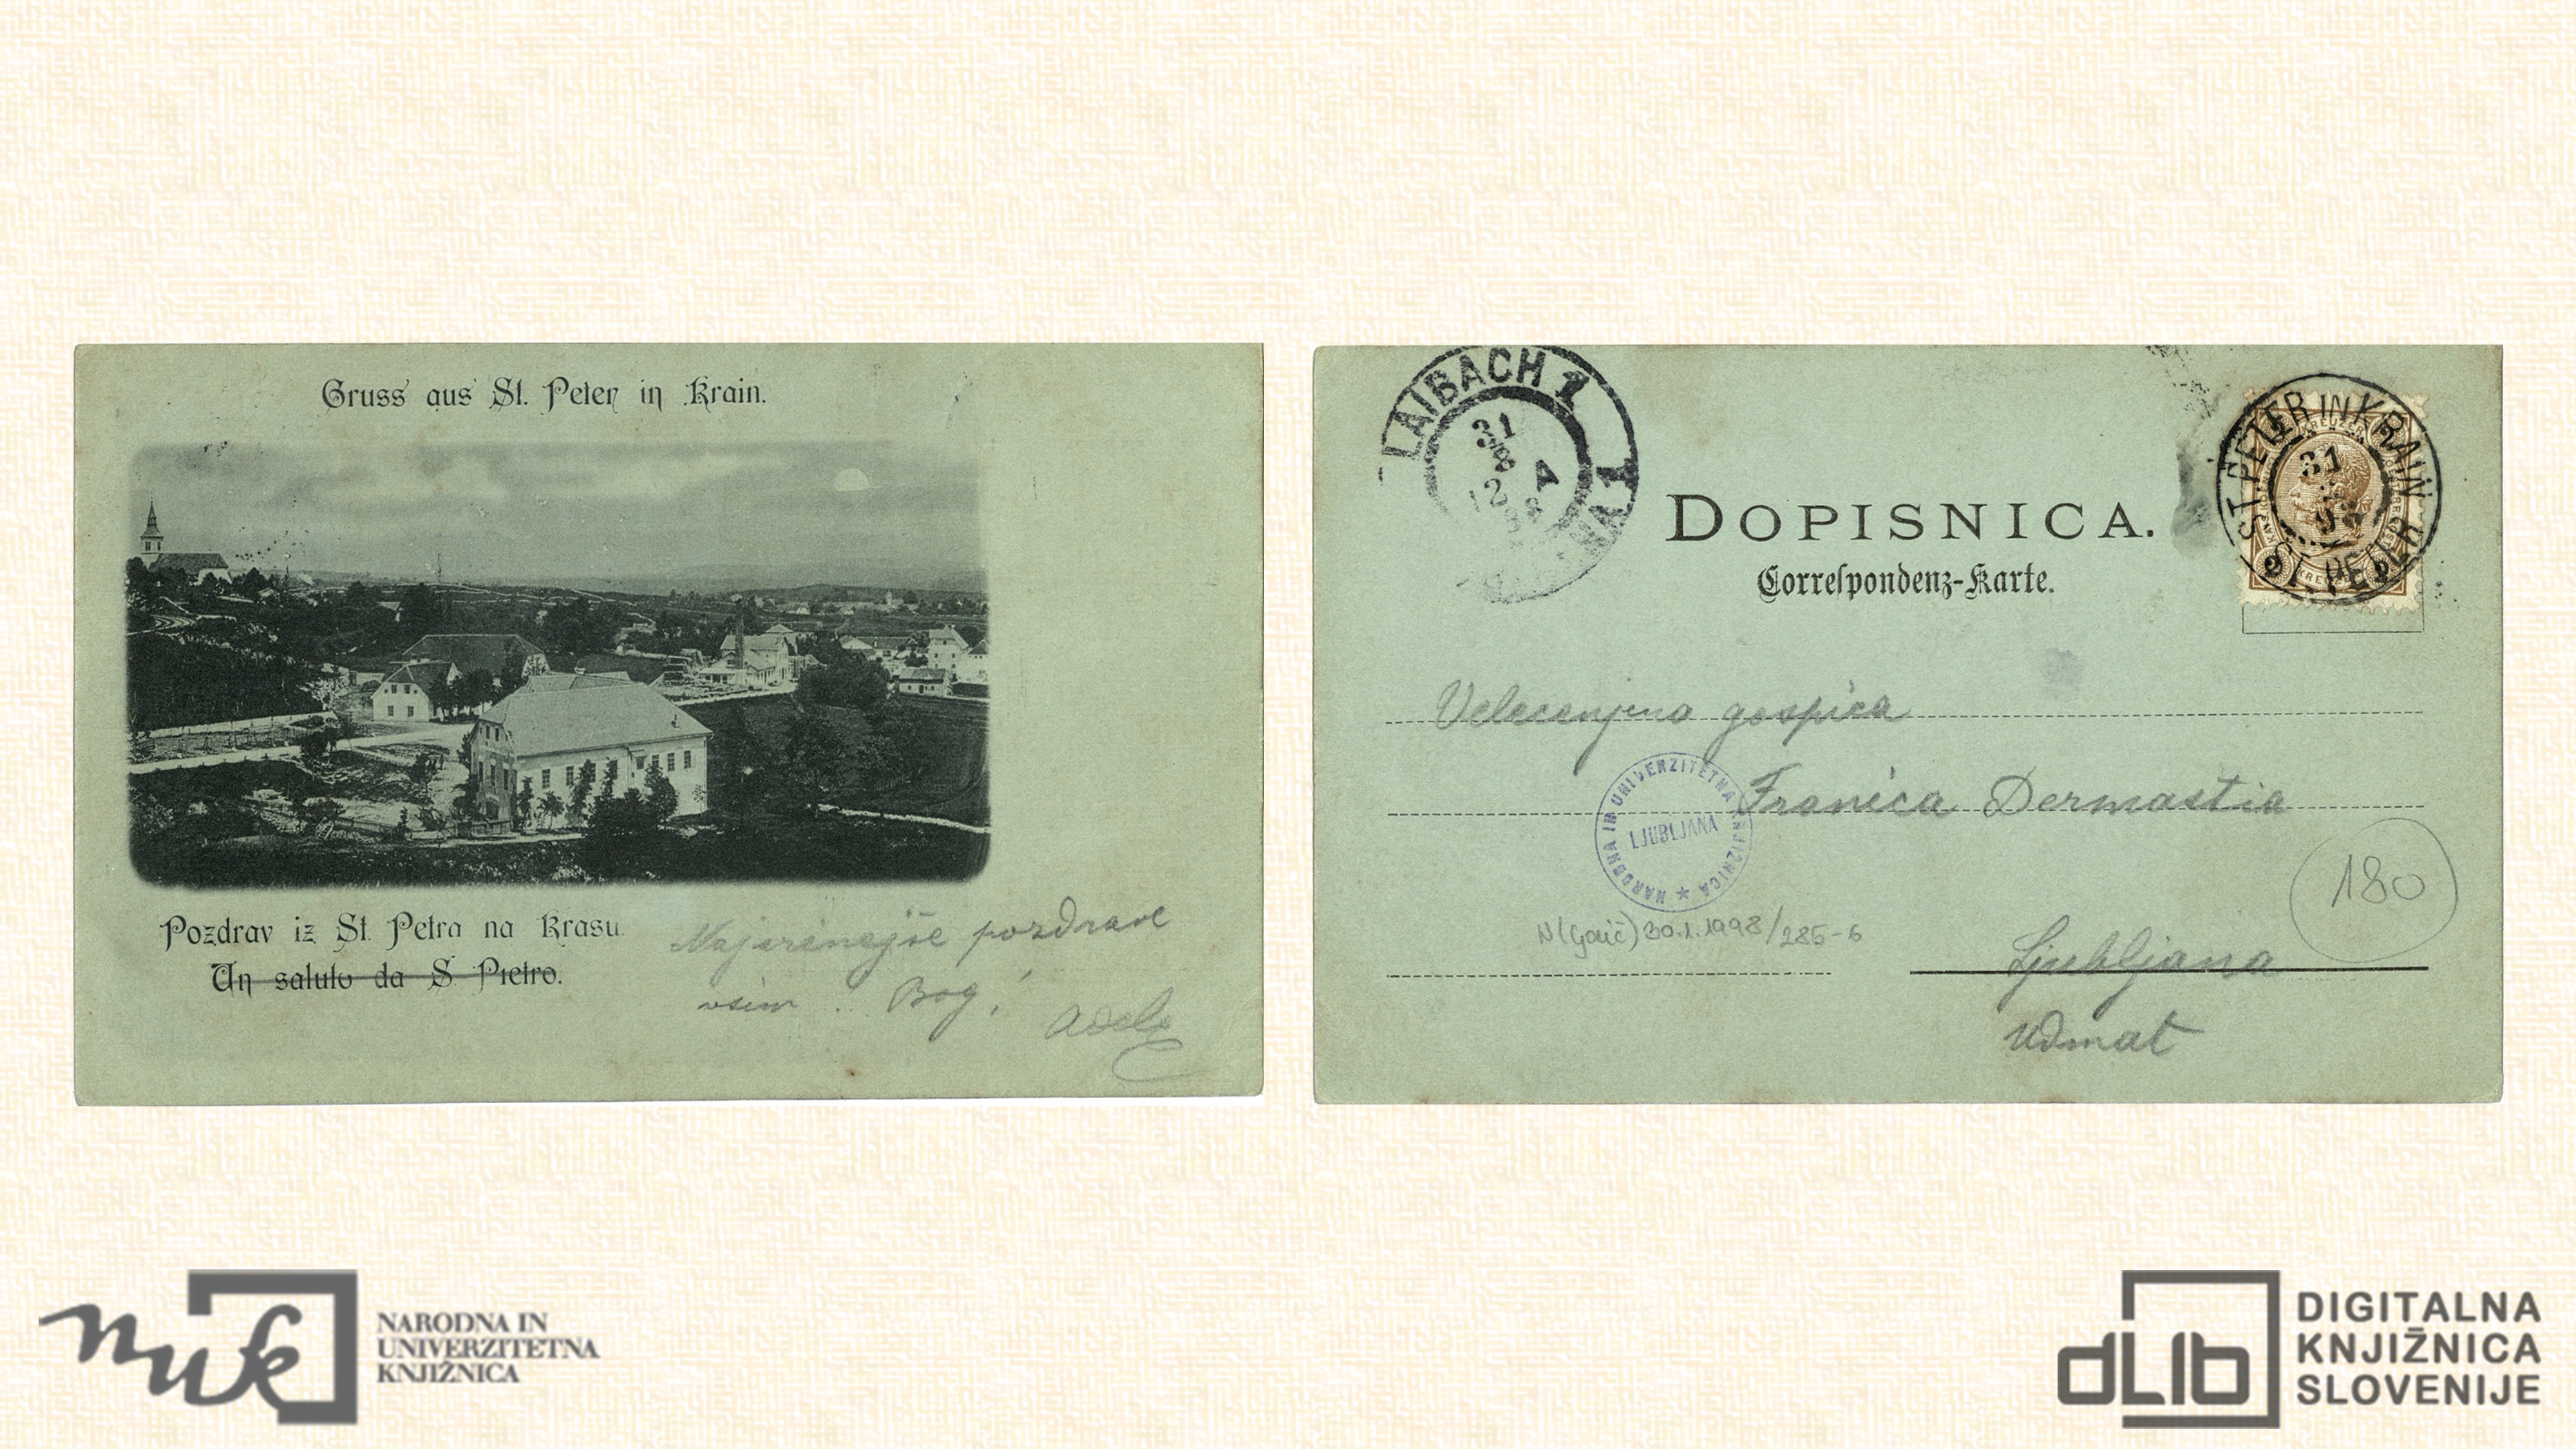 Gruss aus St. Peter in Krain.
Pozdrav iz St. Petra na Krasu.
Un saluto da S. Pietro.
Najsrčnejše pozdrave
vsim .. Bog!
Adela
LAIBACH 1
31
8
12 A
98
DOPISNICA.
Correſpondenz-Karte.
ST. PETER IN KRAIN
31
98
ST. PETER
Velecenjena gospica
Franica Dermastia
NARODNA IN UNIVERZITETNA KNJIŽNICA ★
LJUBLJANA
30.1.1998/285-6
180
Ljubljana
Udmat
nuk
NARODNA IN
UNIVERZITETNA
KNJIŽNICA
dLib
DIGITALNA
KNJIŽNICA
SLOVENIJE